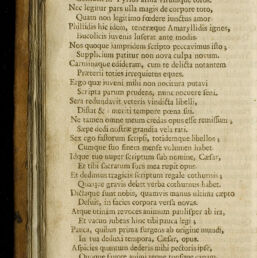 Nec legitur pars ulla magis de corpore toto,
Quam non legitimo fœdere junctus amor.
Phyllidis hic idem, teneræque Amaryllidis ignes,
Bucolicis juvenis luserat ante modis.
Nos quoque jampridem scripto peccavimus isto;
Supplicium patitur non nova culpa novum.
Carminaque edideram, cum te delicta notantem
Præterii toties irrequietus eques.
Ergo quæ juveni mihi non nocitura putavi
Scripta parum prudens, nunc nocuere seni.
Sera redundavit veteris vindicta libelli,
Distat & à meriti tempore pœna sui.
Ne tamen omne meum credas opus esse remissum;
Sæpe dedi nostræ grandia vela rati.
Sex ego fastorum scripsi, totidemque libellos;
Cumque suo finem mense volumen habet.
Idque tuo nuper scriptum sub nomine, Cæsar,
Et tibi sacratum sors mea rupit opus.
Et dedimus tragicis scriptum regale cothurnis;
Quæque gravis debet verba cothurnus habet.
Dictaque sunt nobis, quamvis manus ultima cœpto
Defuit, in facies corpora versa novas.
Atque utinam revoces animum paulisper ab ira,
Et vacuo jubeas hinc tibi pauca legi;
Pauca, quibus prima surgens ab origine mundi,
In tua deduxi tempora, Cæsar, opus.
Aspicies quantum dederis mihi pectoris ipse,